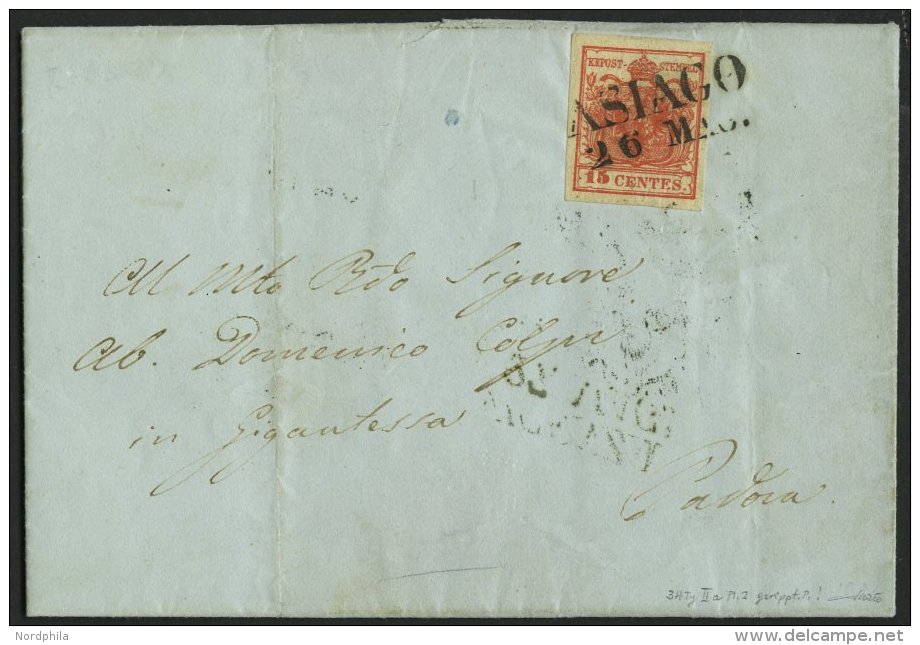 KKPOST-STEMPEL
ASIAGO
26 MAG.
15 CENTES.
Al Mto Rdo Signore
Ab. Domenico Colpi
in Gigantessa
Padova
3HTy II a Pl. 2 gerippt. P. !
Nordphila
delcampe.net